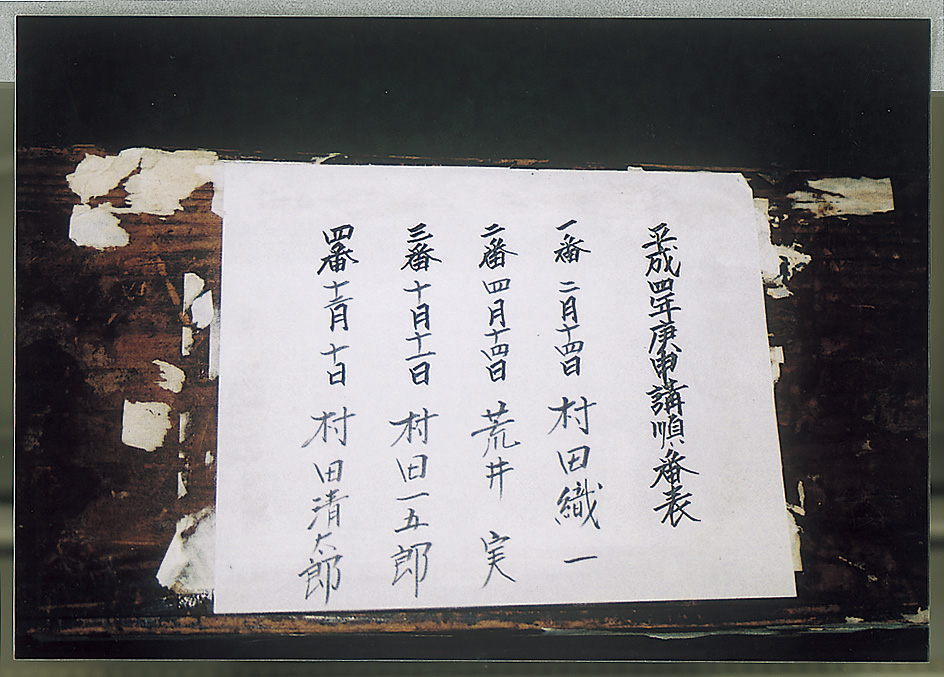 平成四年庚申講順番表
一番 二月十四日 村田織一
二番 四月十四日 荒井 実
三番 十月十一日 村田一五郎
四番 十二月十日 村田清太郎